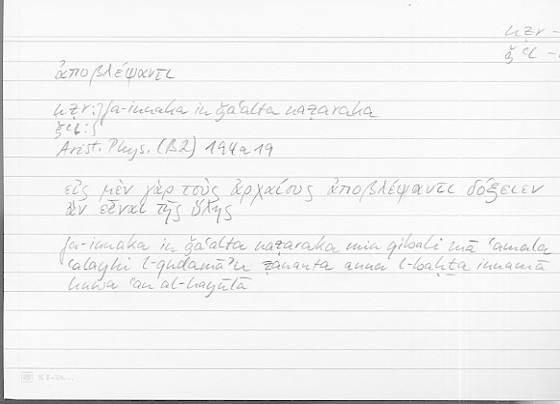 nẓr –
ǧʿl –
ἀποβλέψαντι
nẓr: } fa-innaka in ǧaʿalta naẓaraka
ǧʿl: }
Arist. Phys. (B2) 194a19
εἰς μὲν γὰρ τοὺς ἀρχαίους ἀποβλέψαντι δόξειεν
ἂν εἶναι τῆς ὕλης
fa-innaka in ǧaʿalta naẓaraka min qibali mā ʿamala
ʿalayhi l-qudamāʾu ẓananta anna l-baḥṯa innamā
huwa ʿan al-hayūlā